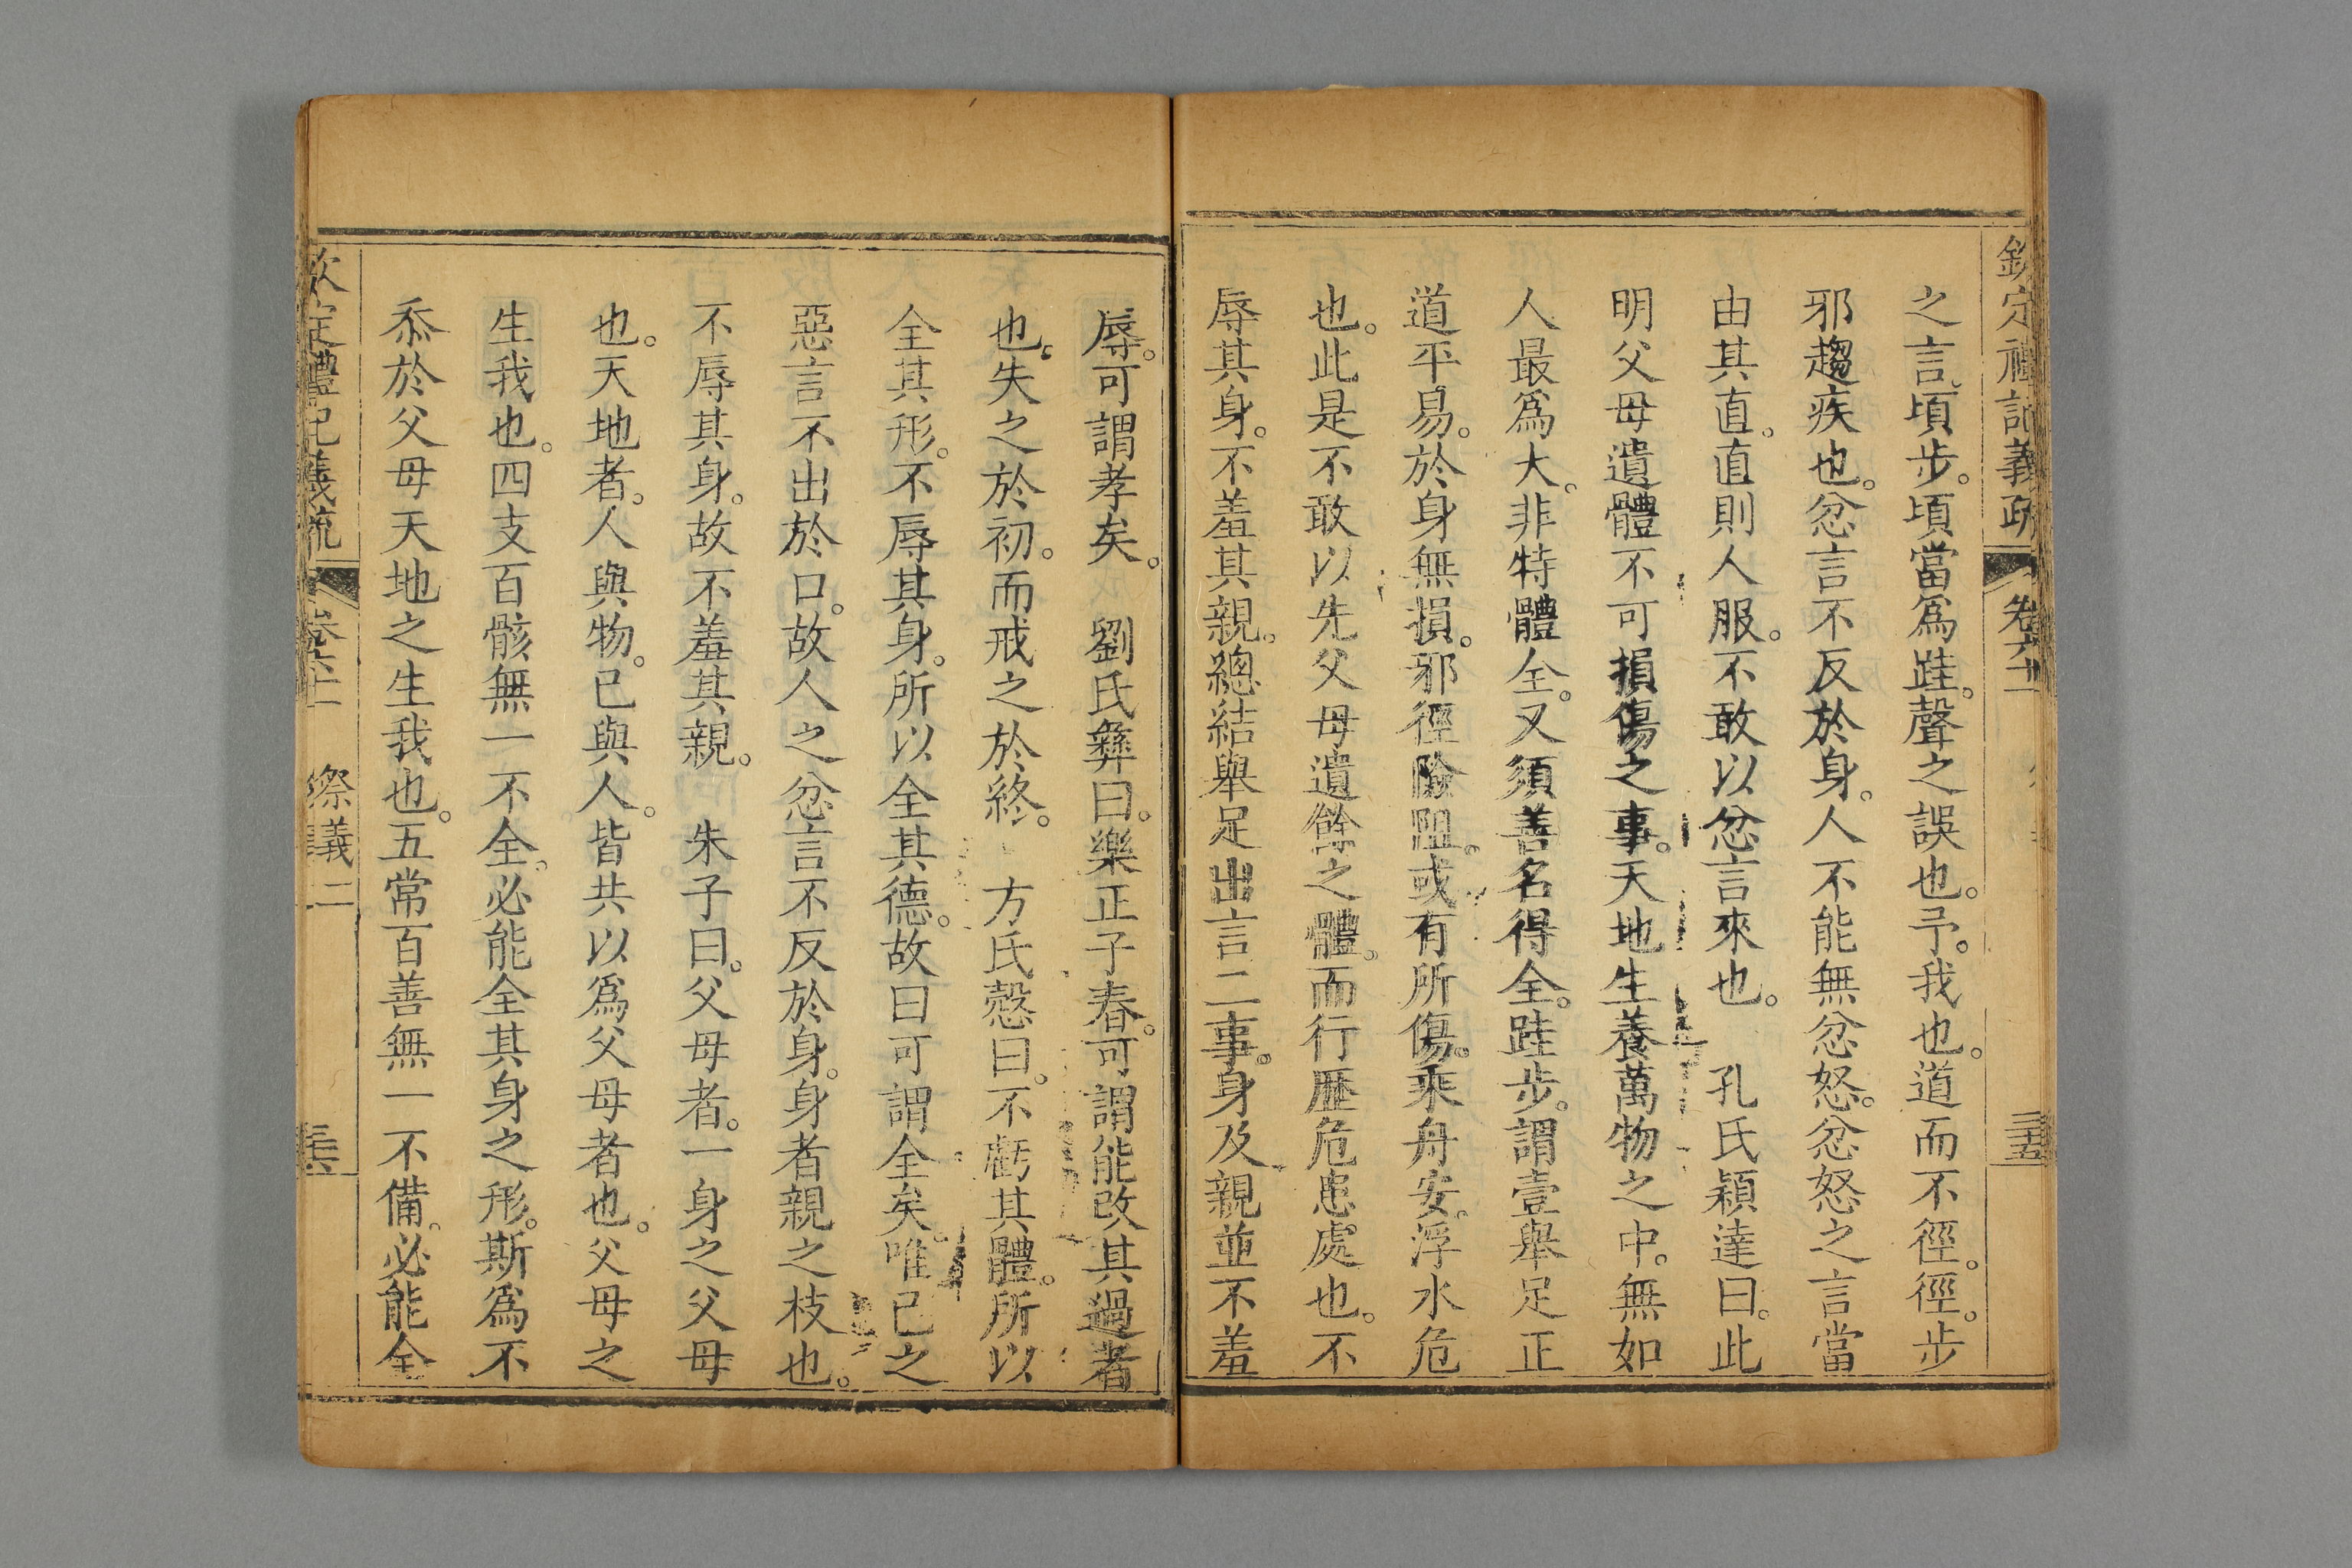 欽定禮記義疏 卷六十二
之言。頃步。頃當爲跬。聲之誤也。予。我也。道而不徑。徑。步
邪趨疾也。忿言不反於身。人不能無忿怒。忿怒之言當
由其直。直則人服。不敢以忿言來也。　孔氏穎達曰。此
明父母遺體不可損傷之事。天地生養萬物之中。無如
人最爲大。非特體全。又須善名得全。跬步。謂壹舉足正
道平易。於身無損。邪徑險阻。或有所傷。乘舟安。浮水危
也。此是不敢以先父母遺餘之體。而行歷危患處也。不
辱其身。不羞其親。總結舉足出言二事。身及親並不羞
辱。可謂孝矣。　劉氏彝曰。樂正子春。可謂能改其過者
也。失之於初。而戒之於終。　方氏慤曰。不虧其體。所以
全其形。不辱其身。所以全其德。故曰可謂全矣。唯己之
惡言不出於口。故人之忿言不反於身。身者親之枝也。
不辱其身。故不羞其親。　朱子曰。父母者。一身之父母
也。天地者。人與物。己與人。皆共以爲父母者也。父母之
生我也。四支百骸無一不全。必能全其身之形。斯爲不
忝於父母天地之生我也。五常百善無一不備。必能全
欽定禮記義疏 卷六十二 祭義二